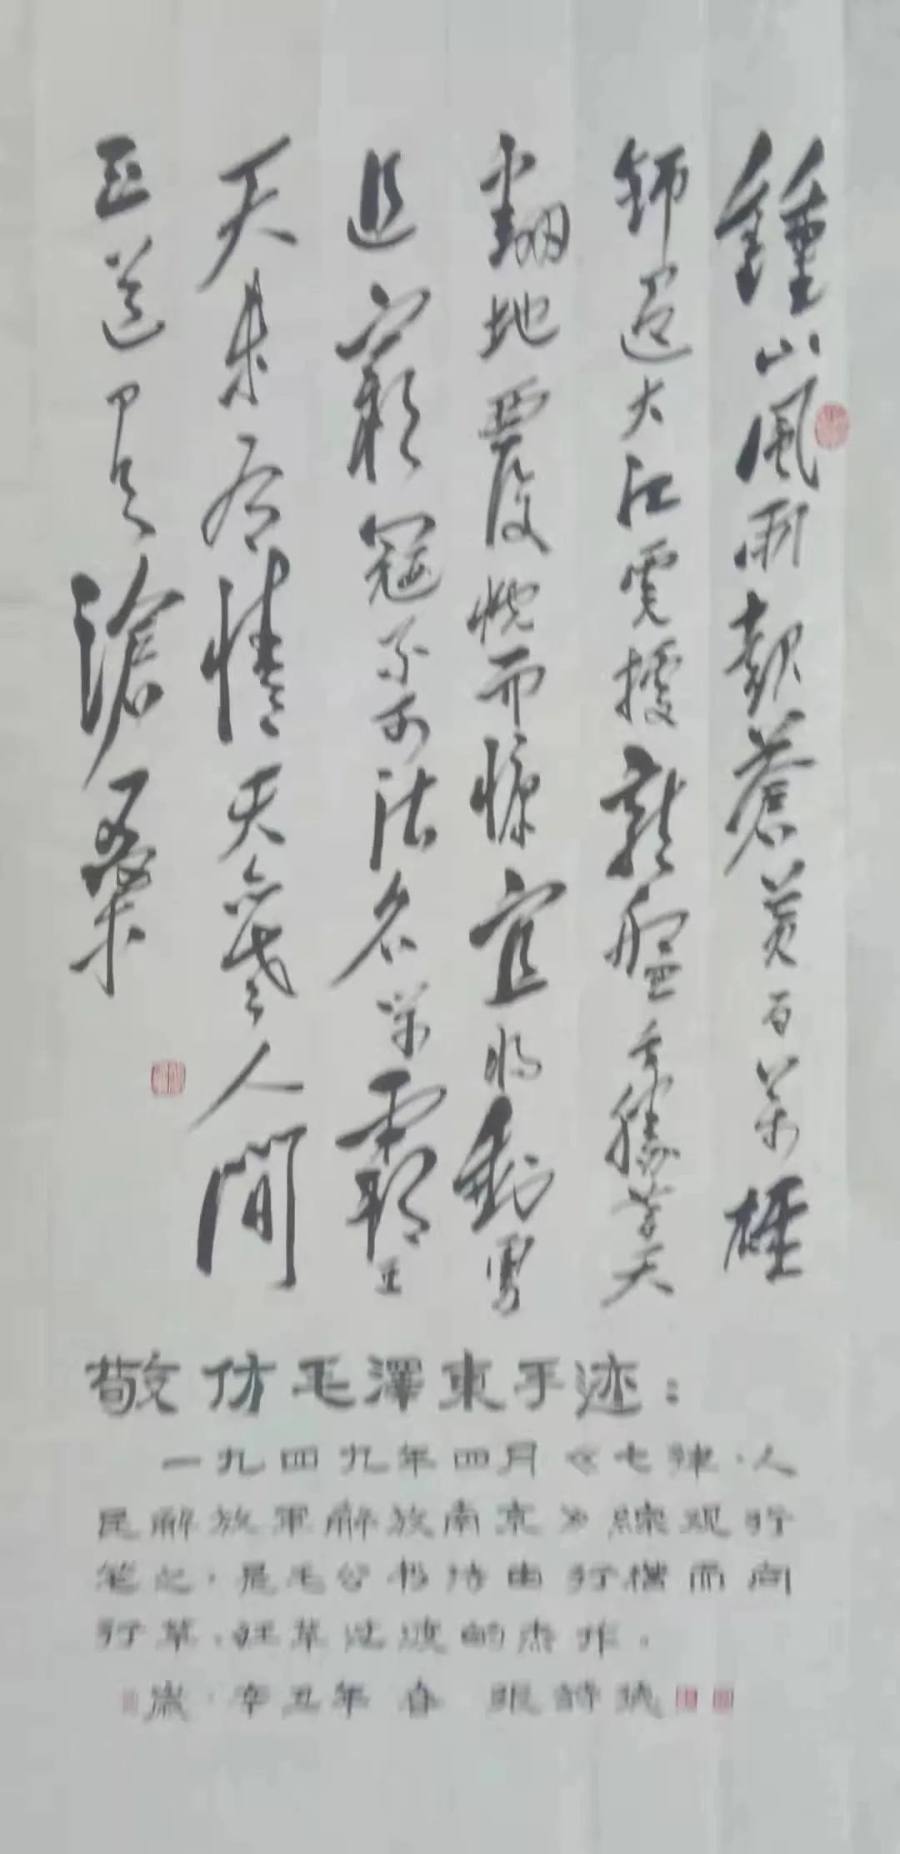 鍾山風雨起蒼黃百萬雄
師過大江虎據龍盤今勝昔天
翻地覆慨而慷宜將剩勇
追窮寇不可沽名學霸王
天若有情天亦老人間
正道是滄桑
敬仿毛澤東手迹：
一九四九年四月《七律·人
民解放軍解放南京》綜观行
笔之，是毛公书诗由行楷而向
行草、狂草过渡的杰作。
嵗·辛丑年春